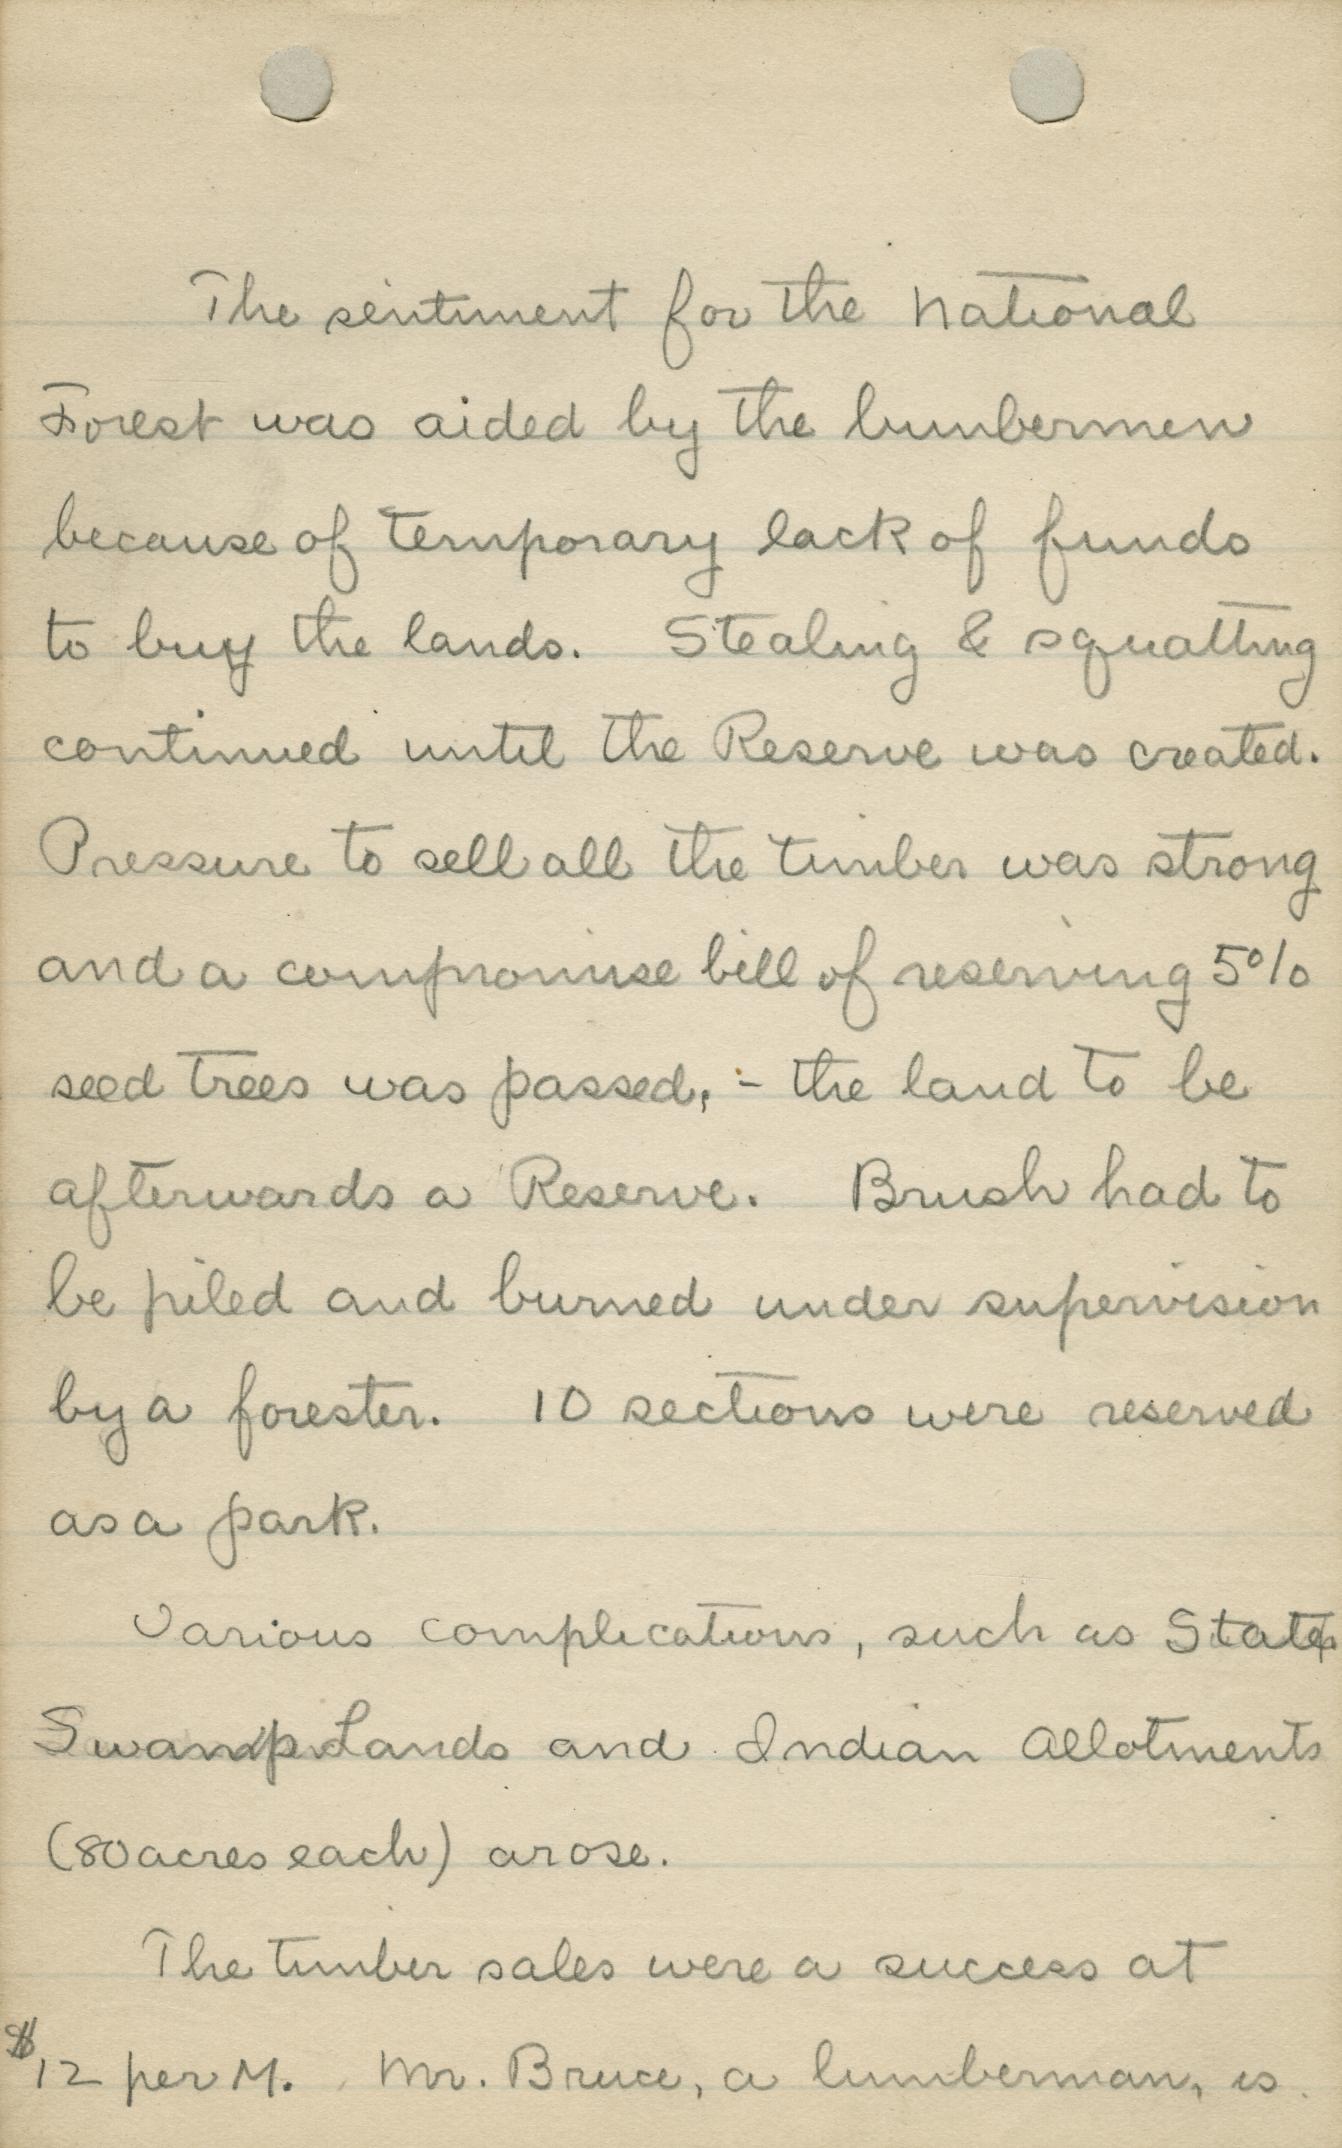 The sentiment for the National
Forest was aided by the lumbermen
because of temporary lack of funds
to buy the lands. Stealing & squatting
continued until the Reserve was created.
Pressure to sell all the timber was strong
and a compromise bill of reserving 5%
seed trees was passed, - the land to be
afterwards a Reserve. Brush had to
be piled and burned under supervision
by a forester. 10 sections were reserved
as a park.
Various complications, such as State
Swamp Lands and Indian Allotments
(80 acres each) arose.
The timber sales were a success at
$12 per M. Mr. Bruce, a lumberman, is